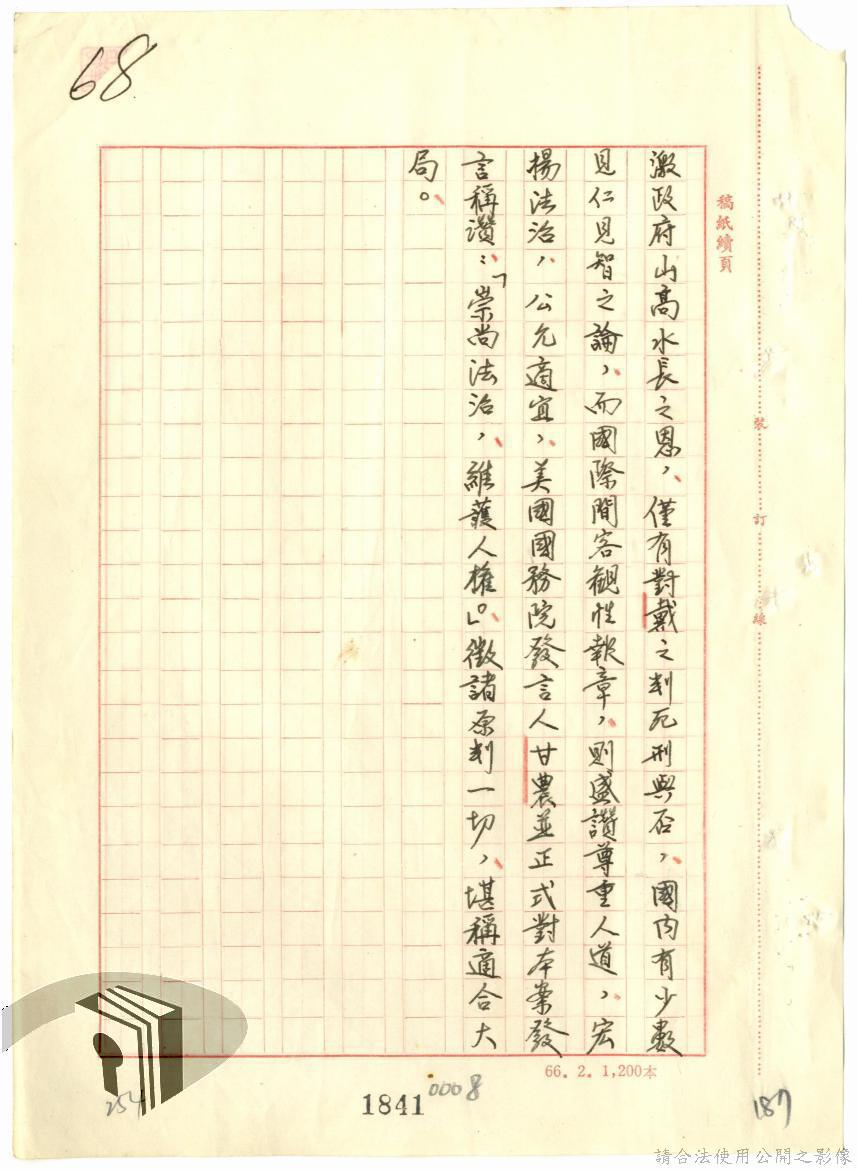 68
稿紙續頁
激政府山高水長之恩，僅有對戴之判死刑與否，國內有少數
見仁見智之論，而國際間客觀性報章，則盛讚尊重人道，宏
揚法治，公允適宜，美國國務院發言人甘農並正式對本案發
言稱讚：「崇尚法治，維護人權」。徵諸原判一切，堪稱適合大
局。
裝
訂
線
66. 2. 1,200本
254
1841
0008
187
請合法使用公開之影像